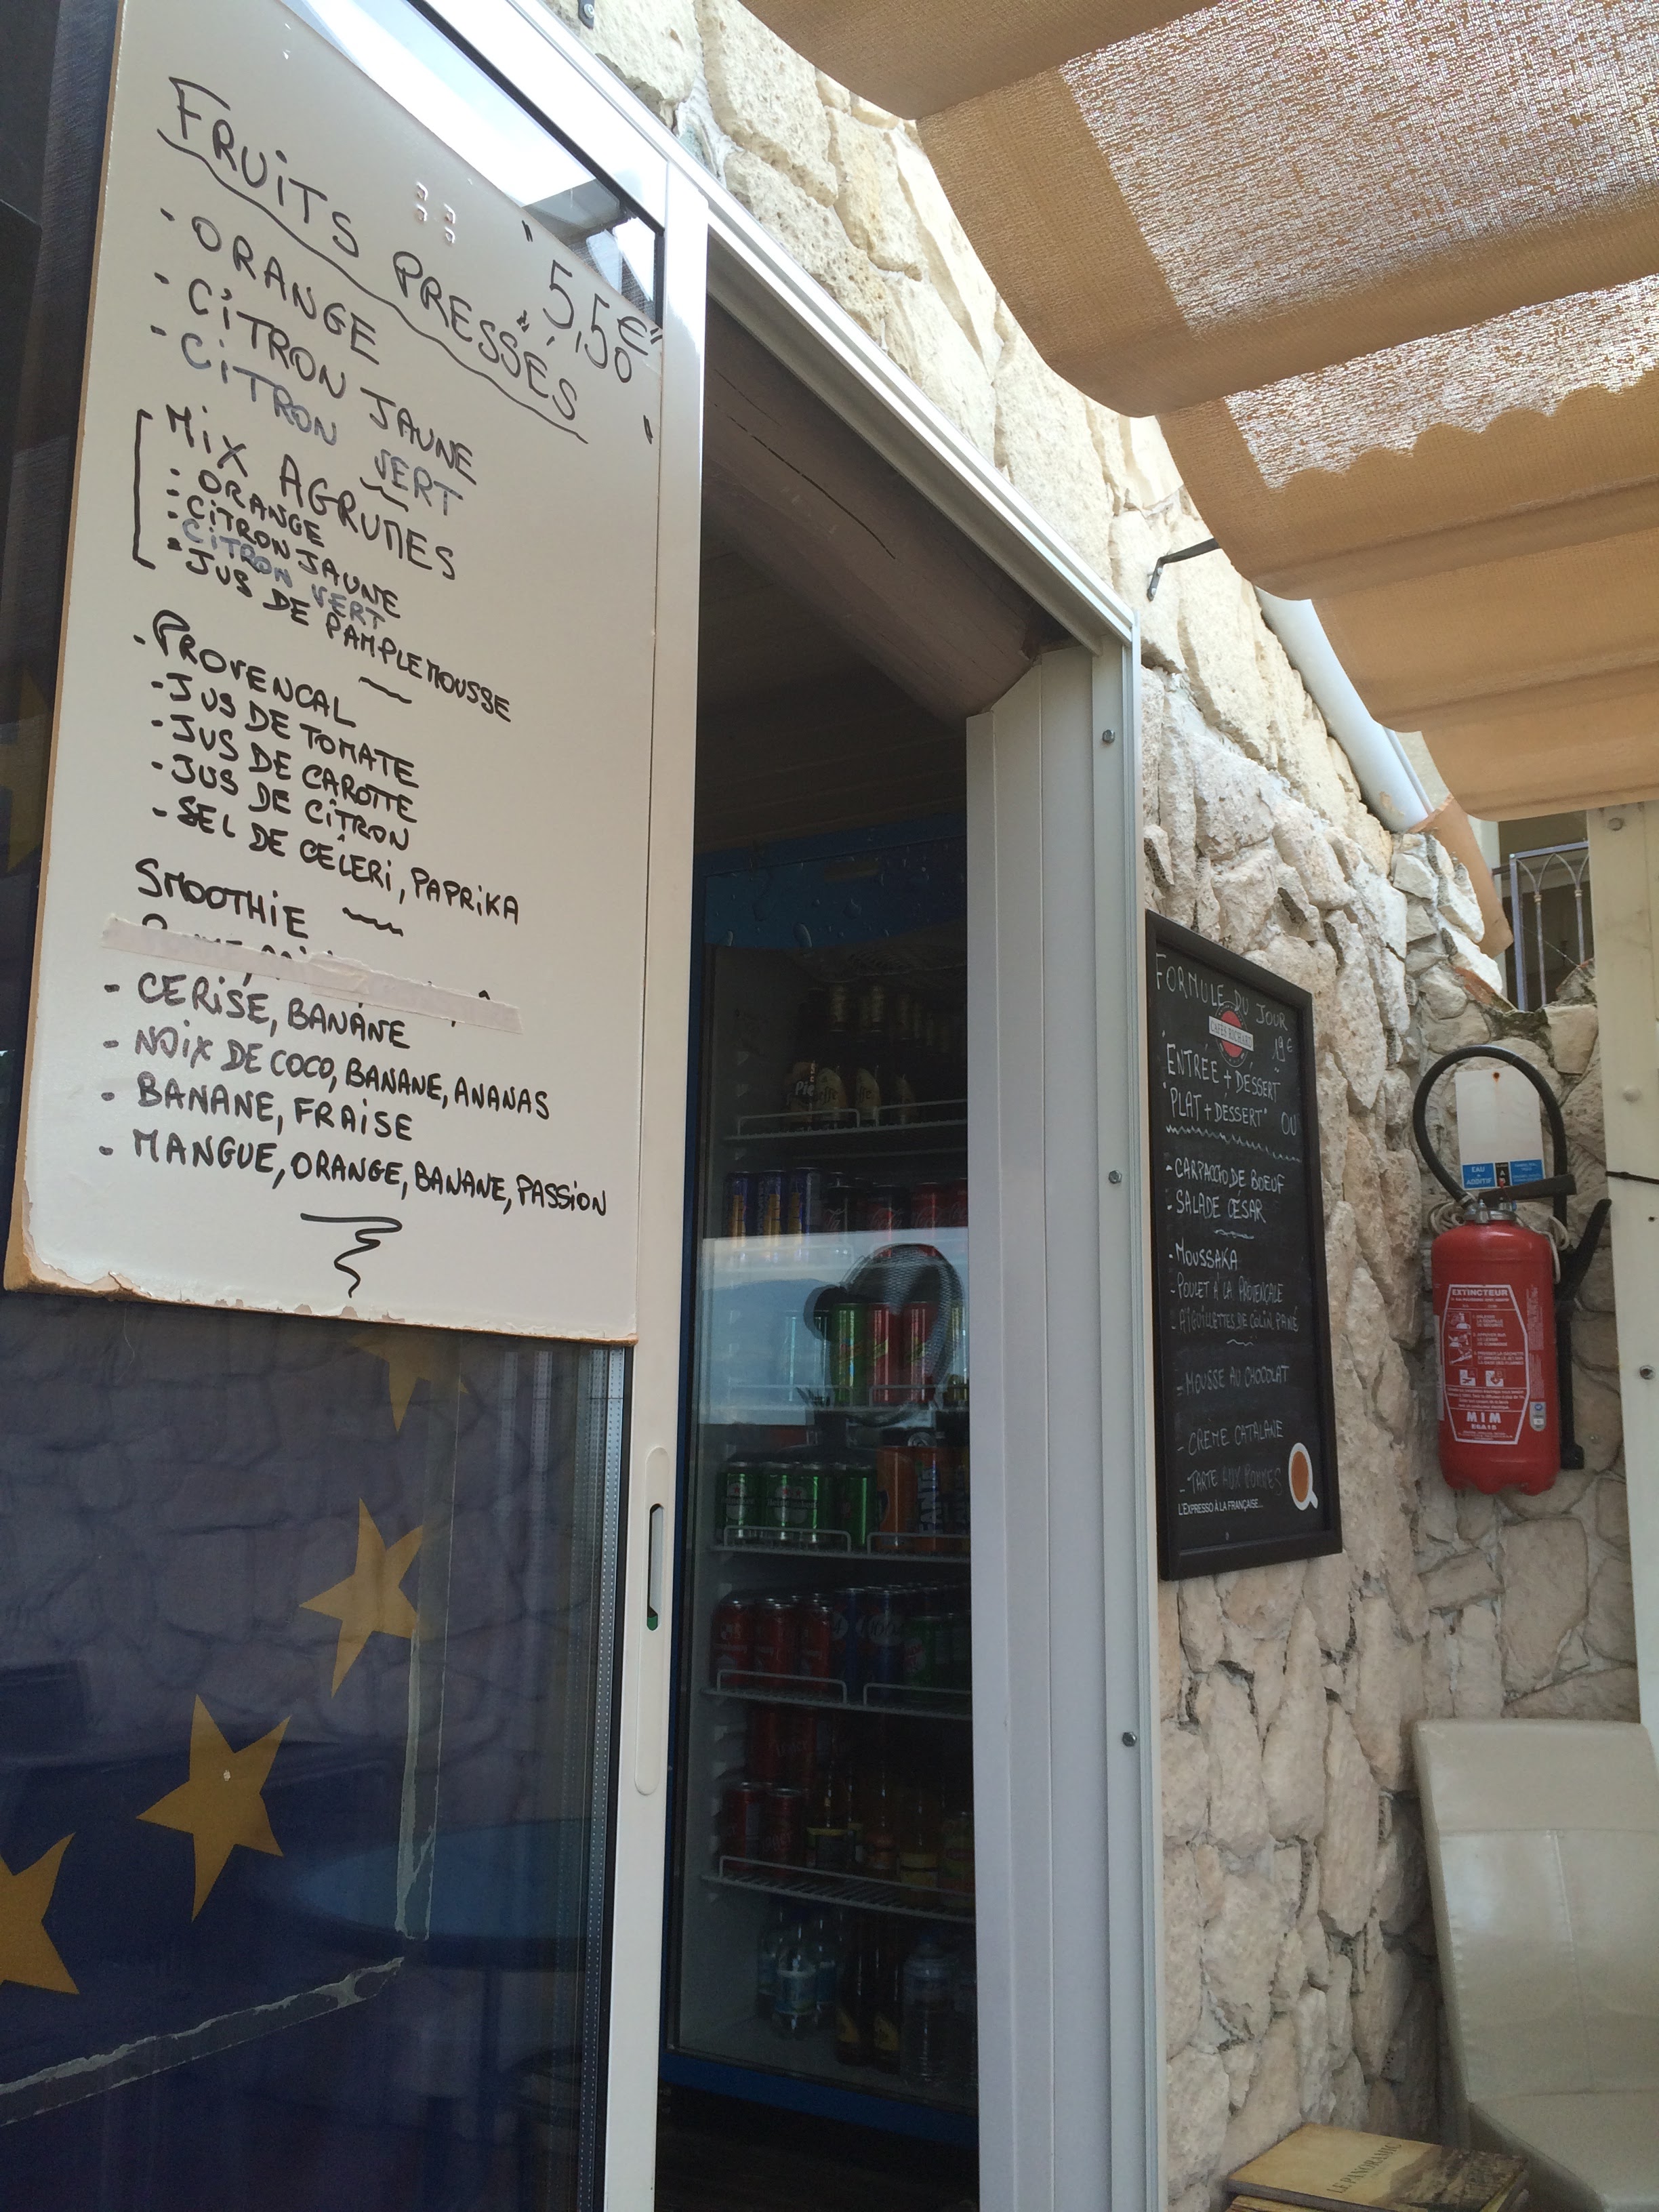 FRUITS PRESSÉS
"5,50€"
- ORANGE
- CITRON JAUNE
- CITRON VERT
MIX AGRUMES
- ORANGE
- CITRON JAUNE
- CITRON VERT
- JUS DE PAMPLEMOUSSE
- PROVENCAL
- JUS DE TOMATE
- JUS DE CAROTTE
- JUS DE CITRON
- SEL DE CÉLERI, PAPRIKA
SMOOTHIE
- CERISE, BANANE
- NOIX DE COCO, BANANE, ANANAS
- BANANE, FRAISE
- MANGUE, ORANGE, BANANE, PASSION
FORMULE DU JOUR
CAFÉS RICHARD
19€
ENTRÉE + DESSERT
PLAT + DESSERT OU
- CARPACCIO DE BOEUF
- SALADE CÉSAR
- MOUSSAKA
- POULET À LA PROVENCALE
- AIGUILLETTES DE COLIN PANÉ
- MOUSSE AU CHOCOLAT
- CRÈME CATALANE
- TARTE AUX POMMES
L'EXPRESSO À LA FRANÇAISE...
EAU + ADDITIF
EXTINCTEUR
MIM
LE PANORAMIC